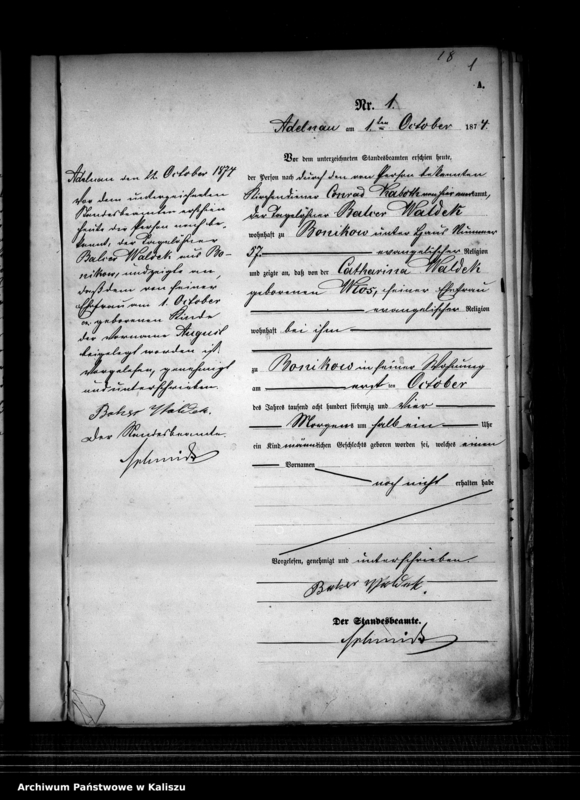 18 1
A.
Nr. 1.
Adelnau am 1ten October 1874.
Vor dem unterzeichneten Standesbeamten erschien heute,
der Person nach durch den von Person bekannten
Kirchendiener Conrad Kaboth
der Tagelöhner Balcer Waldek
wohnhaft zu Bonikow unter Haus Nummer
57. evangelischer Religion
und zeigte an, daß von der Catharina Waldek
geborenen Mos, seiner Ehefrau
evangelischer Religion
wohnhaft bei ihm
zu Bonikow in seiner Wohnung
am erst October
des Jahres tausend acht hundert siebenzig und vier
Morgens um halb ein Uhr
ein Kind männlichen Geschlechts geboren worden sei, welches einen
Vornamen
noch nicht erhalten habe
Vorgelesen, genehmigt und unterschrieben.
Balcer Waldek.
Der Standesbeamte.
Schmidt
Adelnau den 22. October 1874
Vor dem unterzeichneten
Standesbeamten erschien
heute der Person nach be-
kannt, der Tagelöhner
Balcer Waldek aus Bo-
nikow, und zeigte an,
daß dem von seiner
Ehefrau am 1. October
geborenen Kinde
der Vorname August
beigelegt worden ist
Vorgelesen, genehmigt
und unterschrieben.
Balcer Waldek.
Der Standesbeamte.
Schmidt
Archiwum Państwowe w Kaliszu